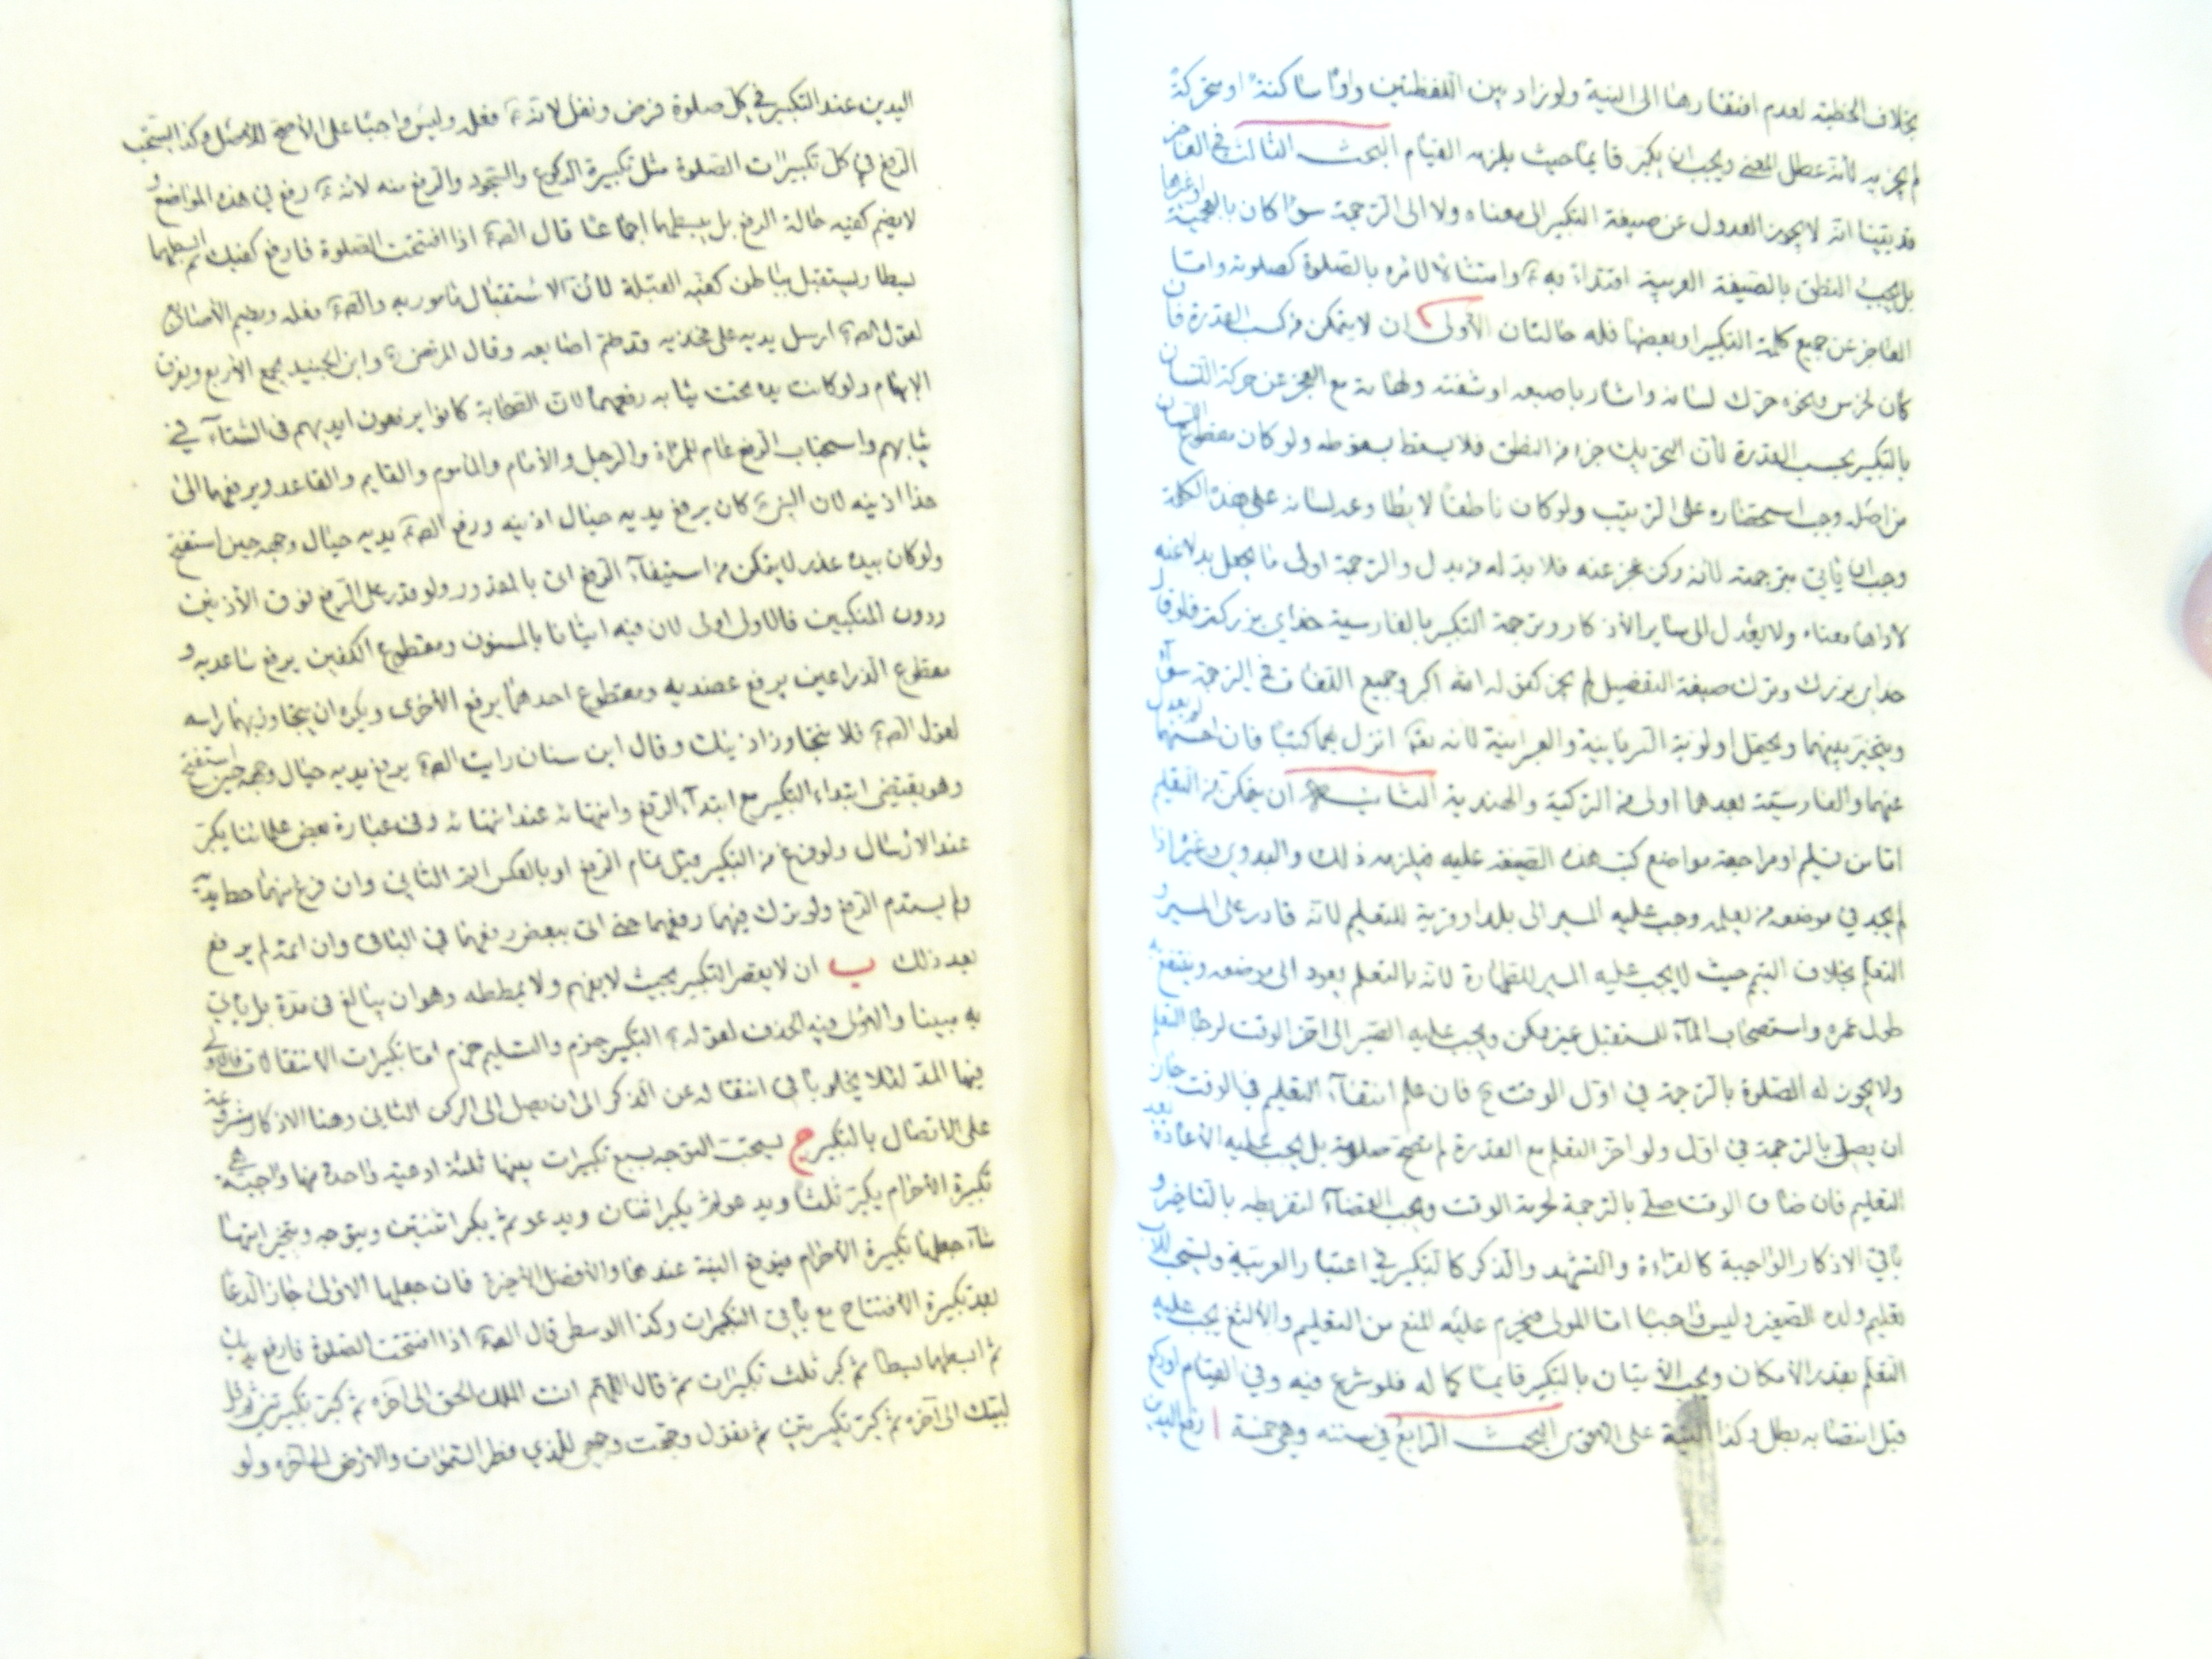 بخلاف الخطبة لعدم افتقارها الى النية ولو زاد بين اللفظتين واوًا ساكنة او متحركة
لم يجز به لأنه عطل المعنى ويجب ان يكبر قايما حيث يلزمه القيام البحث الثالث في العاجز
قد بينا انه لا يجوز العدول عن صيغة التكبير الى معناه ولا الى الترجمة سواء كان بالعجمية اوغيرها
بل يجب النطق بالصيغة العربية اقتداءً به ع وامتثالا لامره بالصلوة كصلوته واما
العاجز عن جميع كلمة التكبير او بعضها فله حالتان الأولى ان لا يتمكن من كسب القدرة فان
كان لخرس ونحوه حرك لسانه واشار باصبعه او شفته ولهاته مع العجز عن حركة اللسان
بالتكبير بحسب القدرة لأن التحريك جزا من النطق فلا يسقط بسقوطه ولو كان مقطوع اللسان
من اصله وجب استحضاره على الترتيب ولو كان ناطقًا لا يطاوعه لسانه على هذه الكلمة
وجب ان يأتي بترجمته لأنه ركن عجز عنه فلا بد له من بدل والترجمة اولى ما يجعل بدلا عنه
لاداها معناه ولا يعدل الى ساير الأذكار وترجمة التكبير بالفارسية خداي بزركتر فلو قال
خداي بزرك وترك صيغة التفضيل لم يجز كقوله الله اكبر وجميع اللغات في الترجمة سواء
ويتخير بينهما ويحتمل اولوية السريانية والعبرانية لأنه تعالى انزل بهما كتبًا فان احسنهما لم يعدل
عنهما والفارسية بعدهما اولى من التركية والهندية الثانية ان يتمكن من التعلم
اما من تعلم او مراجعة مواضع كتب هذه الصيغة عليه فيلزمه ذلك والبدوي وغيره اذا
لم يجد في موضعه من يعلمه وجب عليه المسير الى بلد او قرية للتعليم لأنه قادر على المسير و
التعلم بخلاف التيمم حيث لا يجب عليه المسير للطهارة لأنه بالتعلم يعود الى موضعه وينتفع به
طول عمره واستصحاب الماء للمستقبل غير ممكن ويجب عليه الصبر الى اخر الوقت لرجا التعلم
ولا يجوز له الصلوة بالترجمة في اول الوقت ح فان علم انتفاء التعليم في الوقت جاز
ان يصلي بالترجمة في اول ولو اخر التعلم مع القدرة لم تصح صلوته بل يجب عليه الأعادة بعد
التعليم فان ضاق الوقت صلى بالترجمة لحرمة الوقت ويجب القضاء لتفريطه بالتاخير و
باقي الاذكار الواجبة كالقراءة والتشهد والذكر كالتكبير في اعتبار العربية ويستحب للاب
تعليم ولده الصغير وليس واجبا اما المولى فيحرم عليه المنع من التعليم والألثغ يجب عليه
التعلم بقدر الأمكان ويجب الأتيان بالتكبير قايما كما له فلو شرع فيه وفي القيام او ركع
قبل انتصابه بطل وكذا النية على الاقوى البحث الرابع في سننه وهي خمسة ا رفع اليدين
اليدين عند التكبير في كل صلوة فرض ونفل لانه ع فعله وليس واجبا على الأصح للأصل وكذا يستحب
الرفع في كل تكبيرات الصلوة مثل تكبيرة الركوع والسجود والرفع منه لأنه ع رفع في هذه المواضع و
لا يضم كفيه حالة الرفع بل يبسطهما اجماعا قال الص ع اذا افتتحت الصلوة فارفع كفيك ثم ابسطهما
بسطا ويستقبل بباطن كفيه القبلة لأن الاستقبال مامور به والص ع فعله ويضم الأصابع
لقول الص ع ارسل يديه على فخذيه قد ضم اصابعه وقال المرتضى ره وابن الجنيد يجمع الأربع ويفرق
الإبهام ولو كانت يده تحت ثيابه رفعهما لأن الصحابة كانوا يرفعون ايديهم في الشتاء في
ثيابهم واستحباب الرفع عام للمرأة والرجل والأمام والماموم والقايم والقاعد ويرفعهما الى
حذا اذنيه لان النبي ع كان يرفع يديه حيال اذنيه ورفع الص ع يديه حيال وجهه حين استفتح
ولو كان بيده عذر لا يتمكن من استيفاء الرفع اتى بالمقدور ولو قدر على الرفع فوق الأذنين
ودون المنكبين فالاولى اولى لان فيه اتيانا بالمسنون ومقطوع الكفين يرفع ساعديه و
مقطوع الذراعين يرفع عضديه ومقطوع احدهما يرفع الأخرى ويكره ان يتجاوز بهما راسه
لقول الص ع فلا تتجاوز اذنيك وقال ابن سنان رايت الص ع يرفع يديه حيال وجهه حين استفتح
وهو يقتضي ابتداء التكبير مع ابتداء الرفع وانتهائه عند انتهائه وفي عبارة بعض علمائنا يكبر
عند الارسال ولو فرغ من التكبير قبل تمام الرفع او بالعكس اتم الثاني وان فرغ منهما حط يديه
ولم يستدم الرفع ولو ترك فيهما رفعهما حتى اتى ببعض رفعهما في الباقي وان اتمه لم يرفع
بعد ذلك ب ان لا يقصر التكبير بحيث لا يفهم ولا يمططه وهو ان يبالغ في مده بل ياتي
به مبينا والاولى فيه الحذف لقوله ع التكبير جزم والتسليم جزم اما تكبيرات الانتقالات فالاولى
فيها المد لئلا يخلو باقي انتقاله عن الذكر الى ان يصل الى الركن الثاني وهنا الاذكار مشروعة
على الاتصال بالتكبير ج يستحب التوجه بسبع تكبيرات بينها ثلثة ادعية واحدة منها واجبة هي
تكبيرة الأحرام يكبر ثلثا ويدعو ثم يكبر اثنتان ويدعو ثم يكبر اثنتين ويتوجه ويتخير ايتها
شاء جعلها تكبيرة الأحرام فيوقع النية عندها والأفضل الأخيرة فان جعلها الاولى جاز الدعا
بعد تكبيرة الافتتاح مع باقي التكبيرات وكذا الوسطى قال الص ع اذا افتتحت الصلوة فارفع يديك
ثم ابسطهما بسطا ثم كبر ثلث تكبيرات ثم قال اللهم انت الملك الحق الى آخره ثم كبر تكبيرتين ثم قل
لبيك الى آخره ثم كبر تكبيرتين ثم تقول وجهت وجهي للذي فطر السموات والارض الى آخره ولو